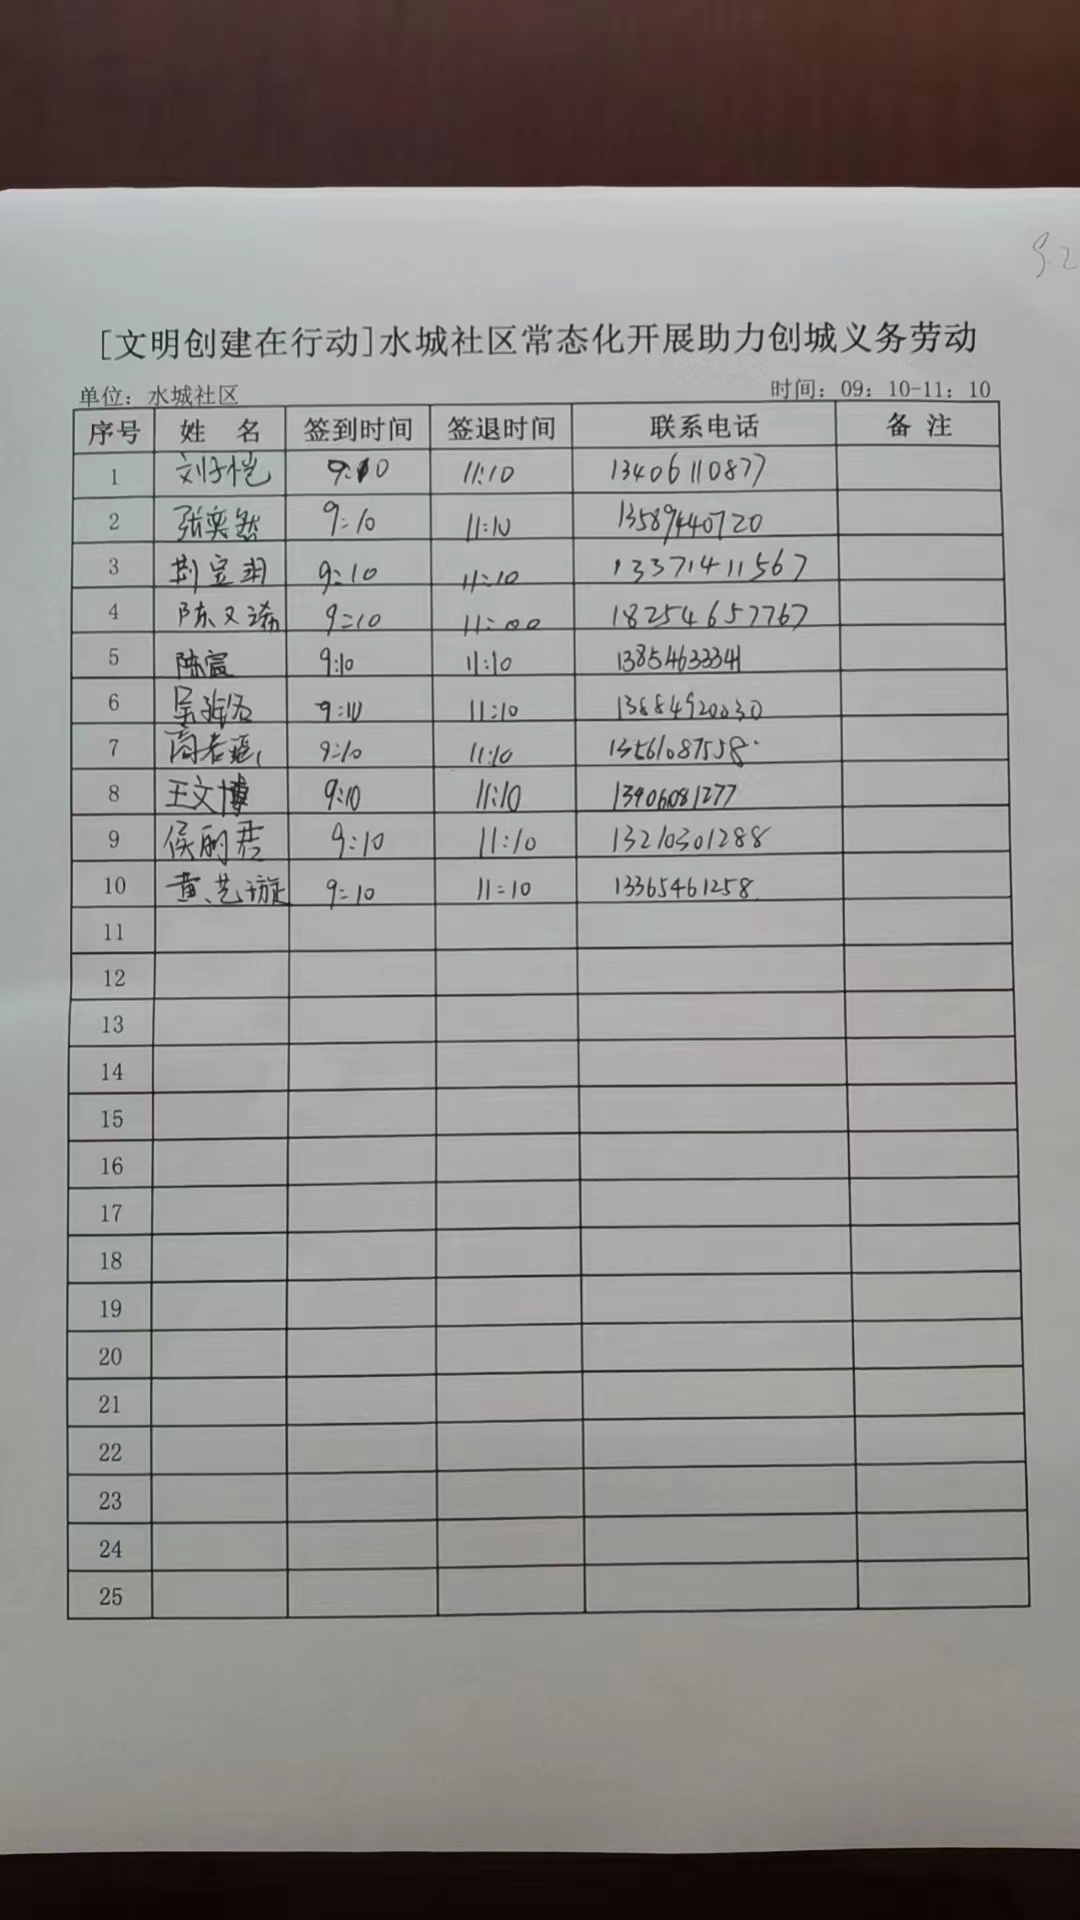 9.2
[文明创建在行动]水城社区常态化开展助力创城义务劳动
单位：水城社区 时间：09：10-11：10
序号 姓 名 签到时间 签退时间 联系电话 备 注
1 刘子恺 9:10 11:10 13406110877
2 张奕然 9:10 11:10 13589440720
3 9:10 11:10 13371411567
4 陈又浠 9:10 11:00 18254657767
5 陈宸 9:10 11:10 13854633341
6 9:10 11:10 13684920030
7 9:10 11:10 13561087558
8 王文博 9:10 11:10 13406081277
9 侯雨君 9:10 11:10 13210301288
10 黄艺璇 9:10 11:10 13365461258
11
12
13
14
15
16
17
18
19
20
21
22
23
24
25